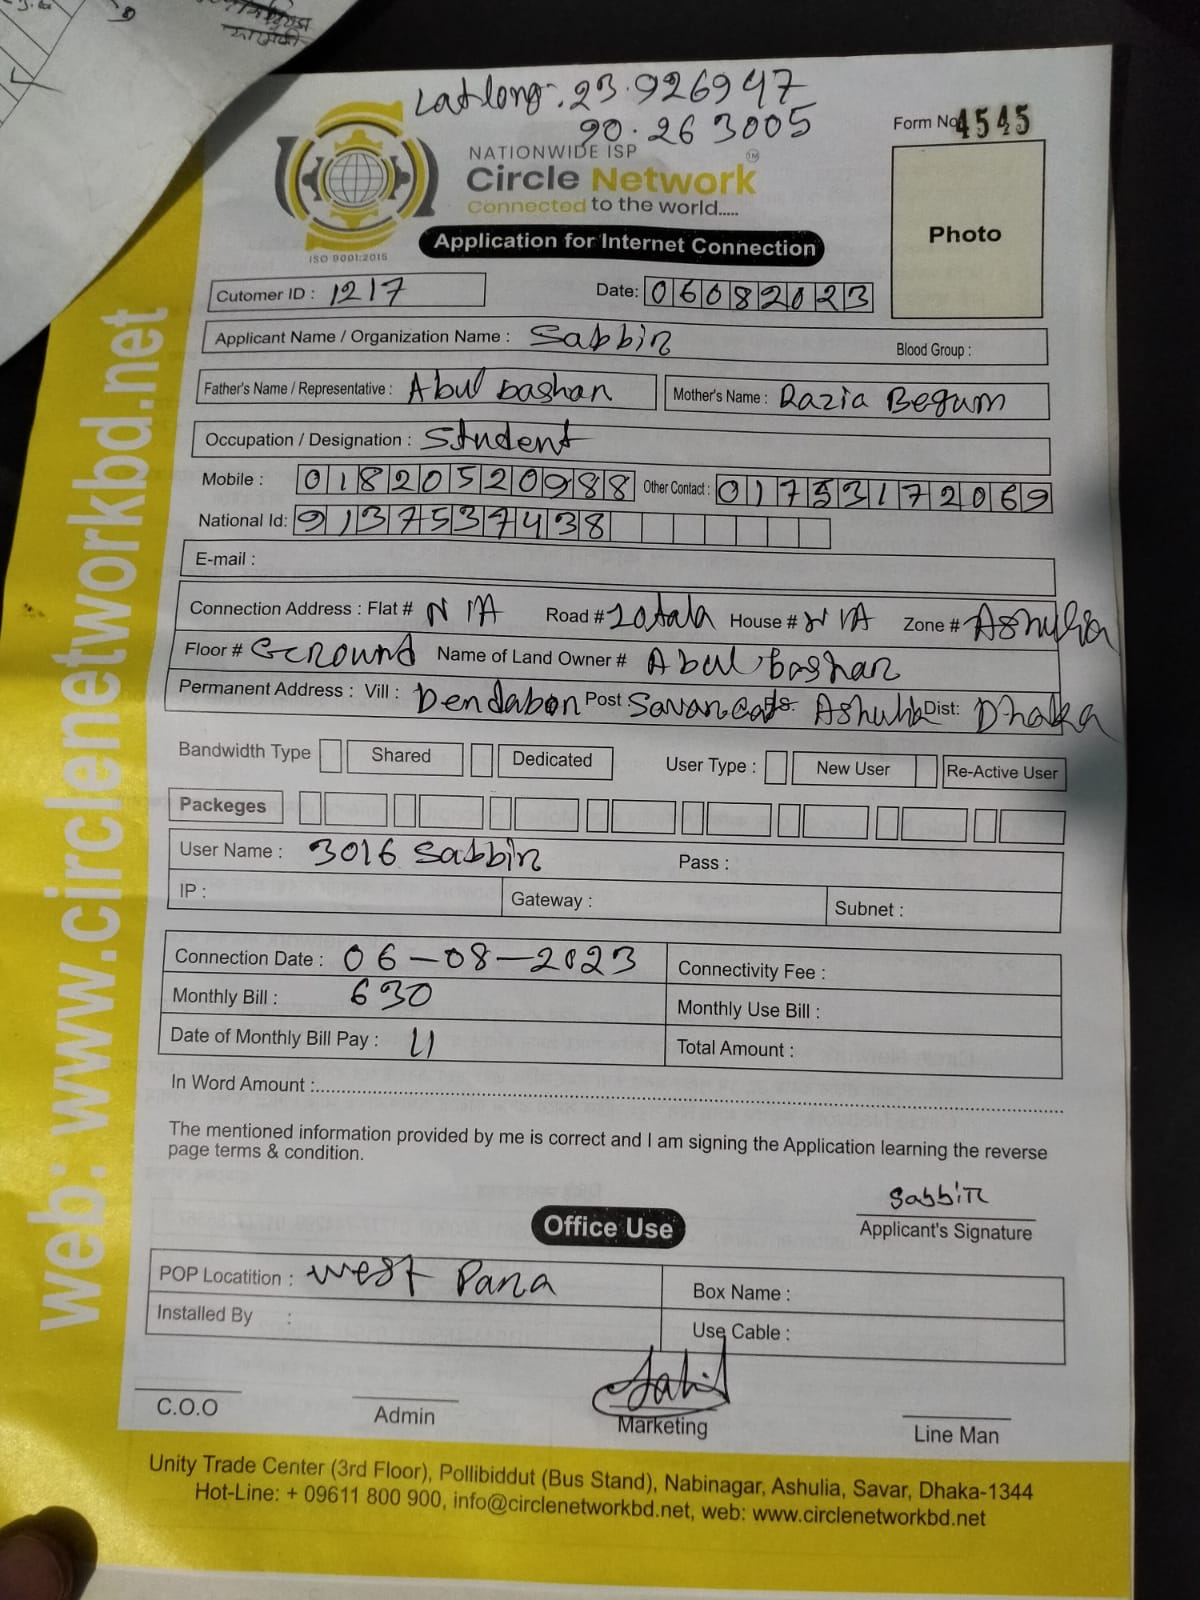 Lat long:. 23.926947
90.263005
Form No 4545
NATIONWIDE ISP
Circle Network TM
Connected to the world.....
ISO 9001:2015
Application for Internet Connection
Photo
Cutomer ID : 1217 Date: 06082023
Applicant Name / Organization Name : Sabbir Blood Group :
Father's Name / Representative : Abul bashar Mother's Name : Razia Begum
Occupation / Designation : Student
Mobile : 01820520988 Other Contact : 01753172069
National Id: 9137537438
E-mail :
Connection Address : Flat # N/A Road # House # N/A Zone # Ashulia
Floor # Ground Name of Land Owner # Abul bashar
Permanent Address : Vill : Dendabor Post Dist: Dhaka
Bandwidth Type Shared Dedicated User Type : New User Re-Active User
Packeges
User Name : 3016 Sabbir Pass :
IP : Gateway : Subnet :
Connection Date : 06-08-2023 Connectivity Fee :
Monthly Bill : 630 Monthly Use Bill :
Date of Monthly Bill Pay : Total Amount :
In Word Amount :
The mentioned information provided by me is correct and I am signing the Application learning the reverse
page terms & condition.
Sabbir
Applicant's Signature
Office Use
POP Locatition : West Para Box Name :
Installed By : Use Cable :
C.O.O Admin Marketing Line Man
Unity Trade Center (3rd Floor), Pollibiddut (Bus Stand), Nabinagar, Ashulia, Savar, Dhaka-1344
Hot-Line: + 09611 800 900, info@circlenetworkbd.net, web: www.circlenetworkbd.net
web: www.circlenetworkbd.net